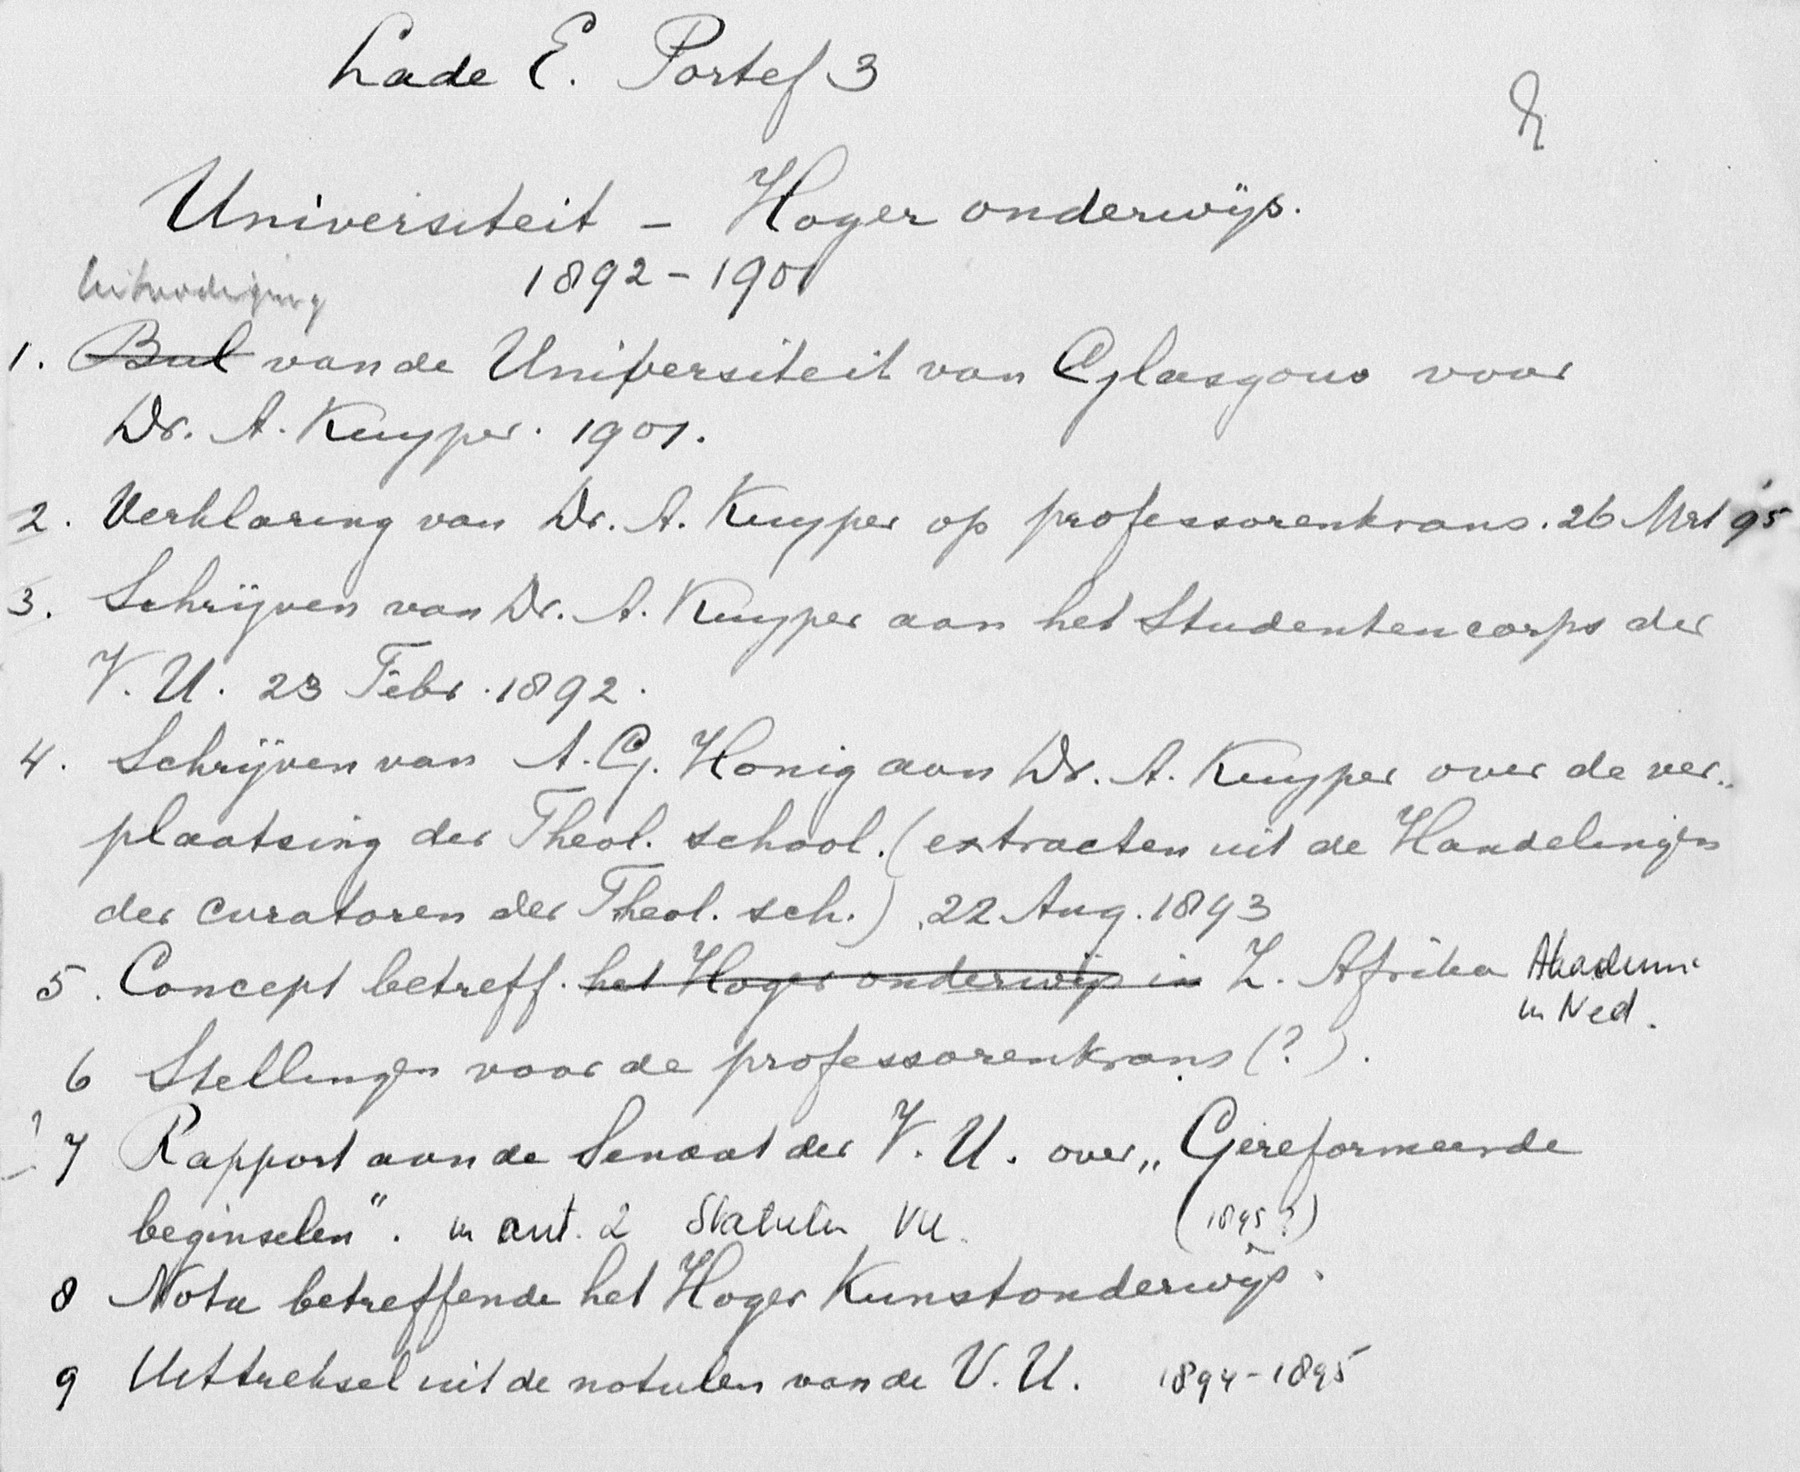 Lade E. Portef 3
Universiteit - Hoger onderwijs.
1892-1901
Uitnodiging
1. Bul van de Universiteit van Glasgow voor
Dr. A. Kuyper. 1901.
2. Verklaring van Dr. A. Kuyper op professorenkrans. 26 Mrt '95
3. Schrijven van Dr. A. Kuyper aan het Studentencorps der
V. U. 23 Febr. 1892.
4. Schrijven van A. G. Honig aan Dr. A. Kuyper over de ver-
plaatsing der Theol. school. (extracten uit de Handelingen
der curatoren der Theol. sch.) 22 Aug. 1893
5. Concept betreff. het Hoger onderwijs in Z. Afrika Akademie
in Ned.
6 Stellingen voor de professorenkrans (?).
? 7 Rapport aan de Senaat der V. U. over „Gereformeerde
beginselen". in art. 2 Statuten VU. (1895?)
8 Nota betreffende het Hoger Kunstonderwijs.
9 Uittreksel uit de notulen van de V. U. 1894-1895